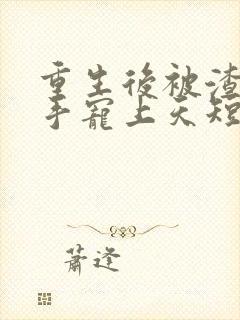 重生後被渣
手寵上天短
蕭逢